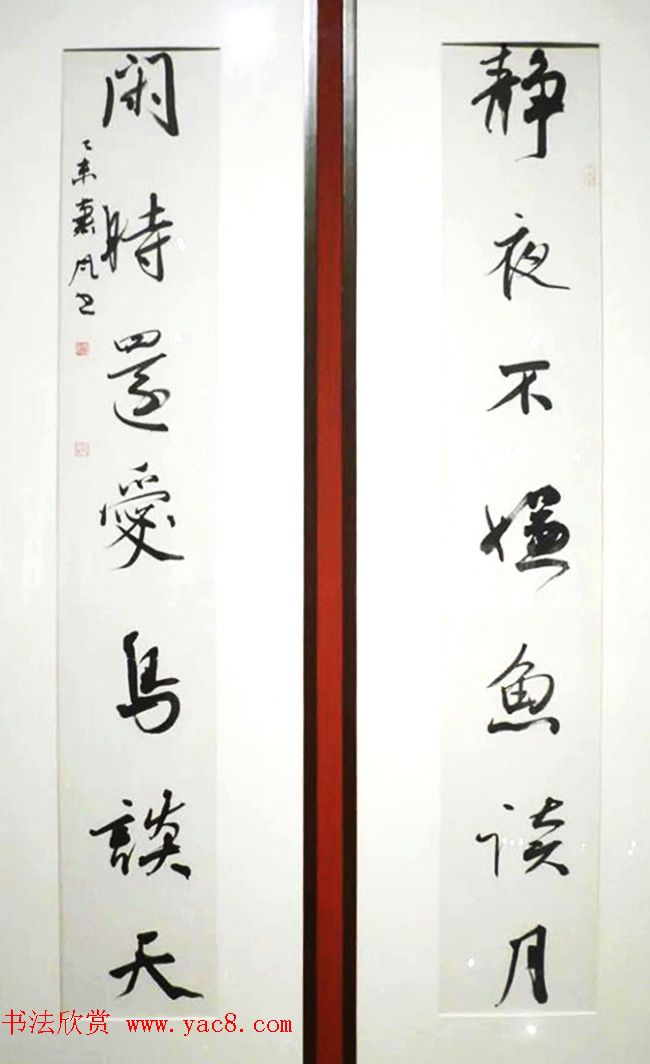 静夜不嫌魚读月
閑時還愛鳥談天
乙未 風书
书法欣赏 www.yac8.com